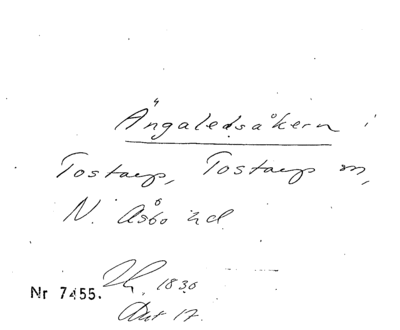 Ängaledsåkern i
Tostarp, Tostarp sn,
N. Åsbo hd.
Nr 7455. Lh. 1830
Akt 17.